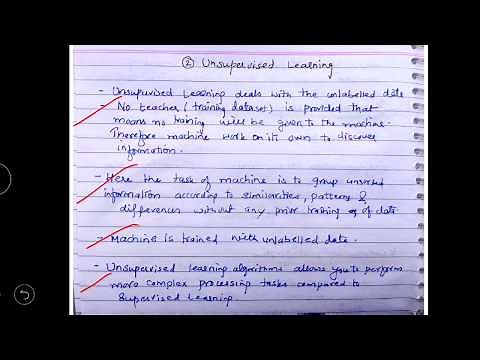 ② Unsupervised Learning
- Unsupervised Learning deals with the unlabelled data
- No teacher (training dataset) is provided that
means no training will be given to the machine.
Therefore machine work on its own to discover
information.
- Here the task of machine is to group unsorted
information according to similarities, patterns &
differences without any prior training of data
- Machine is trained with unlabelled data.
- Unsupervised learning algorithms allows you to perform
more complex processing tasks compared to
Supervised Learning